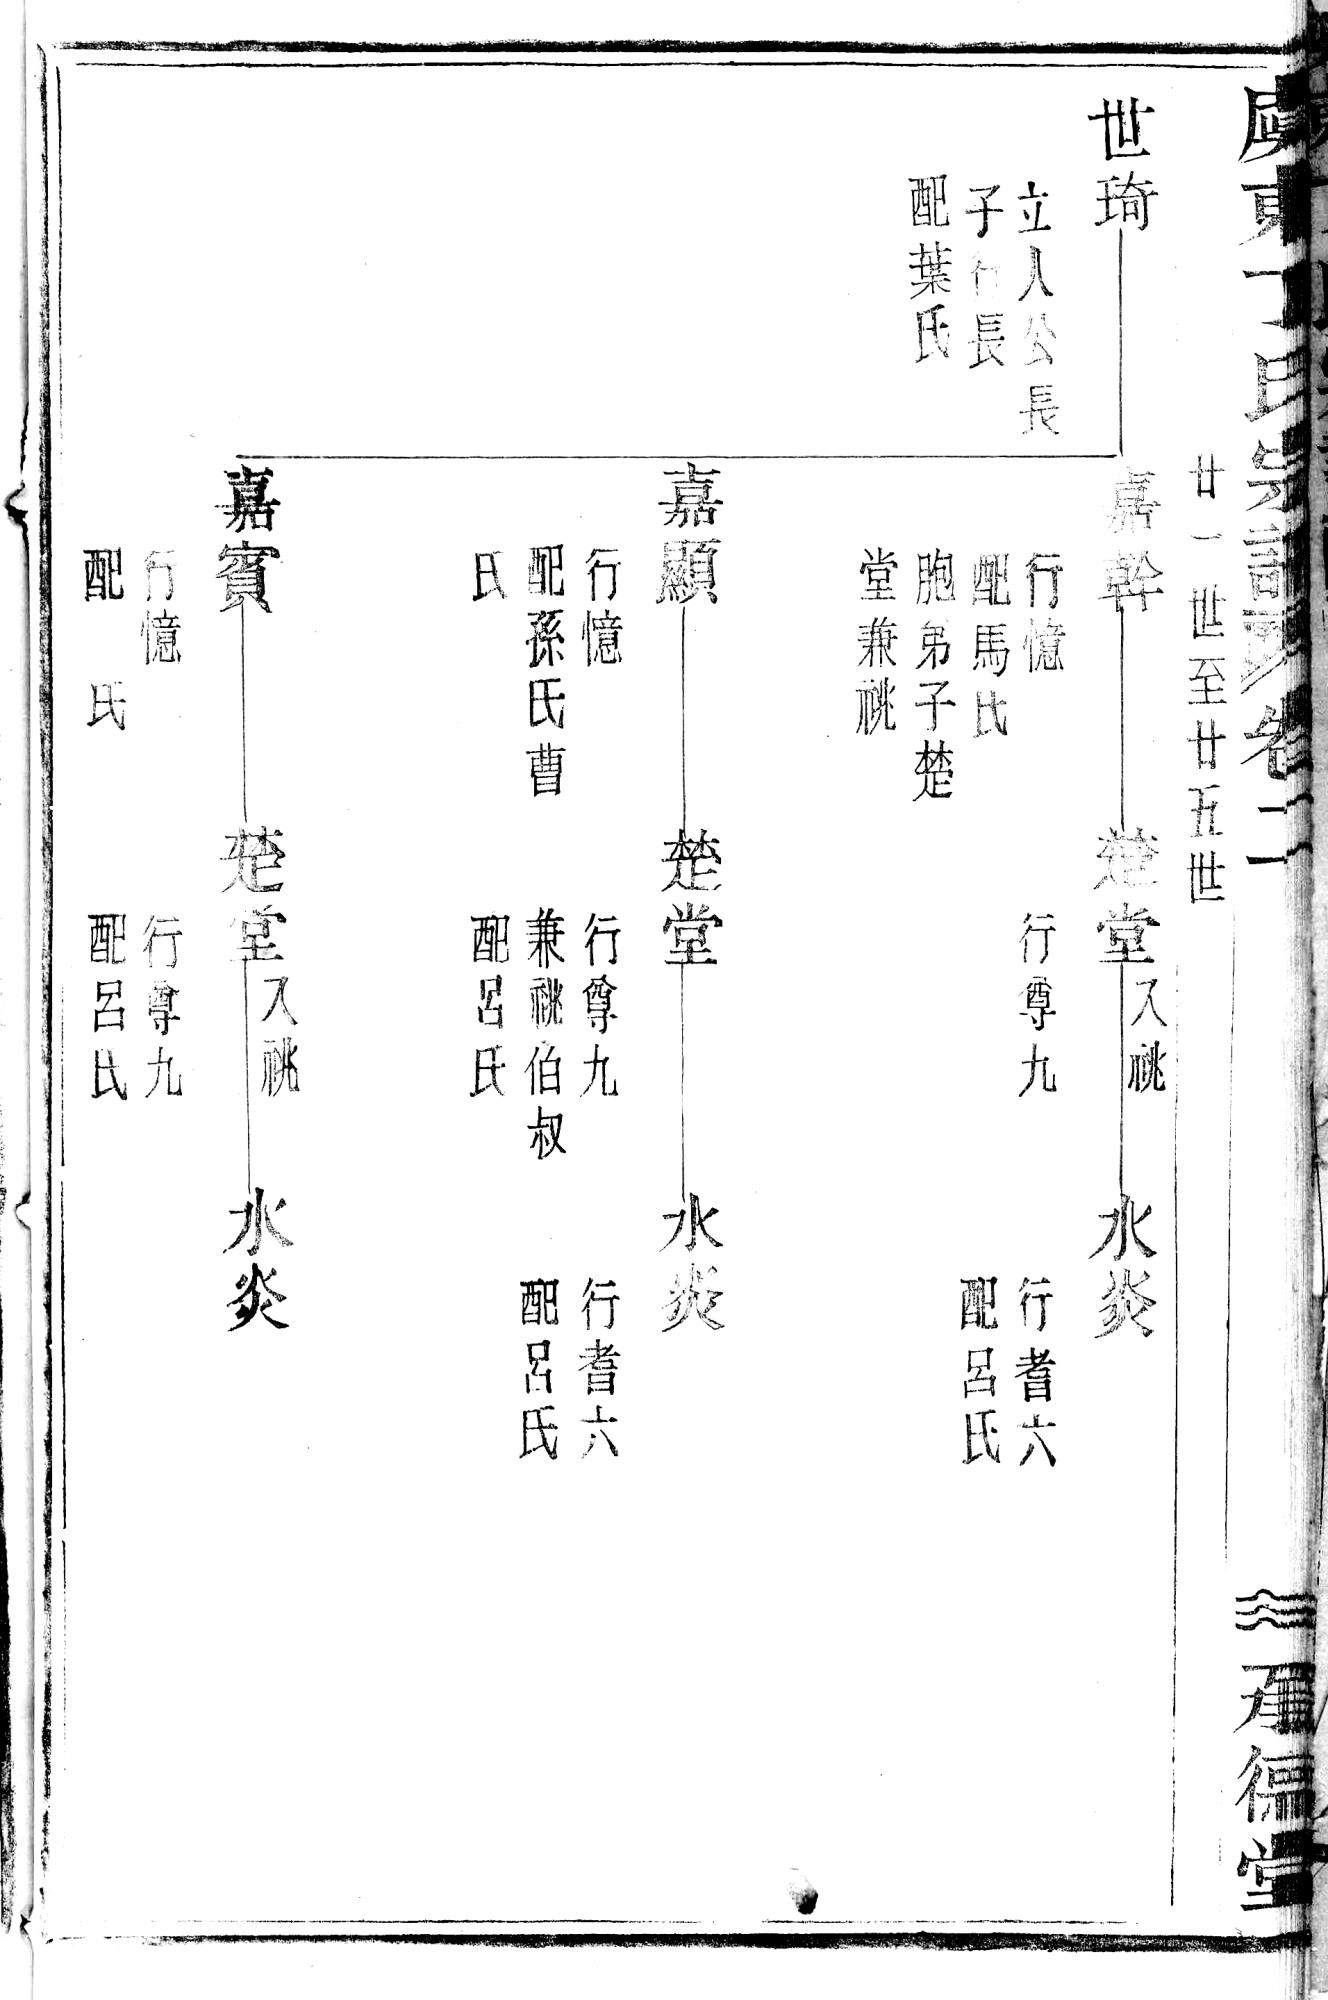 東丁氏宗譜
卷二
承德堂
廿一世至廿五世
世琦
立人公長
子行長
配葉氏
嘉幹
行憶
配馬氏
胞弟子楚
堂兼祧
楚堂入祧
行尊九
水炎
行耆六
配呂氏
嘉顯
行憶
配孫氏曹
氏
楚堂
行尊九
兼祧伯叔
配呂氏
水炎
行耆六
配呂氏
嘉賓
行憶
配 氏
楚堂入祧
行尊九
配呂氏
水炎